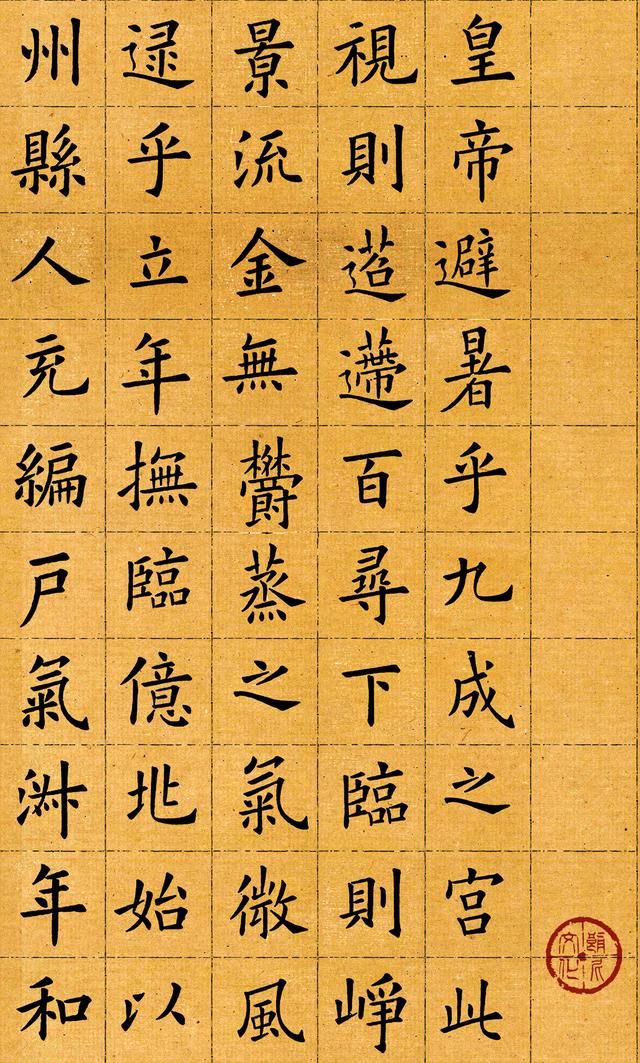 皇帝避暑乎九成之宮此
視則迢遰百尋下臨則崢
景流金無欝蒸之氣微風
逯乎立年撫臨億兆始以
州縣人充編戶氣淑年和
文化